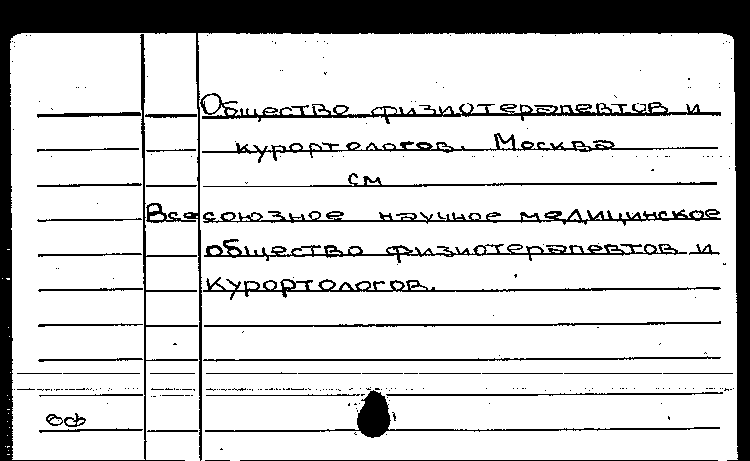 Общество физиотерапевтов и
курортологов. Москва
см
Всесоюзное научное медицинское
общество физиотерапевтов и
курортологов.